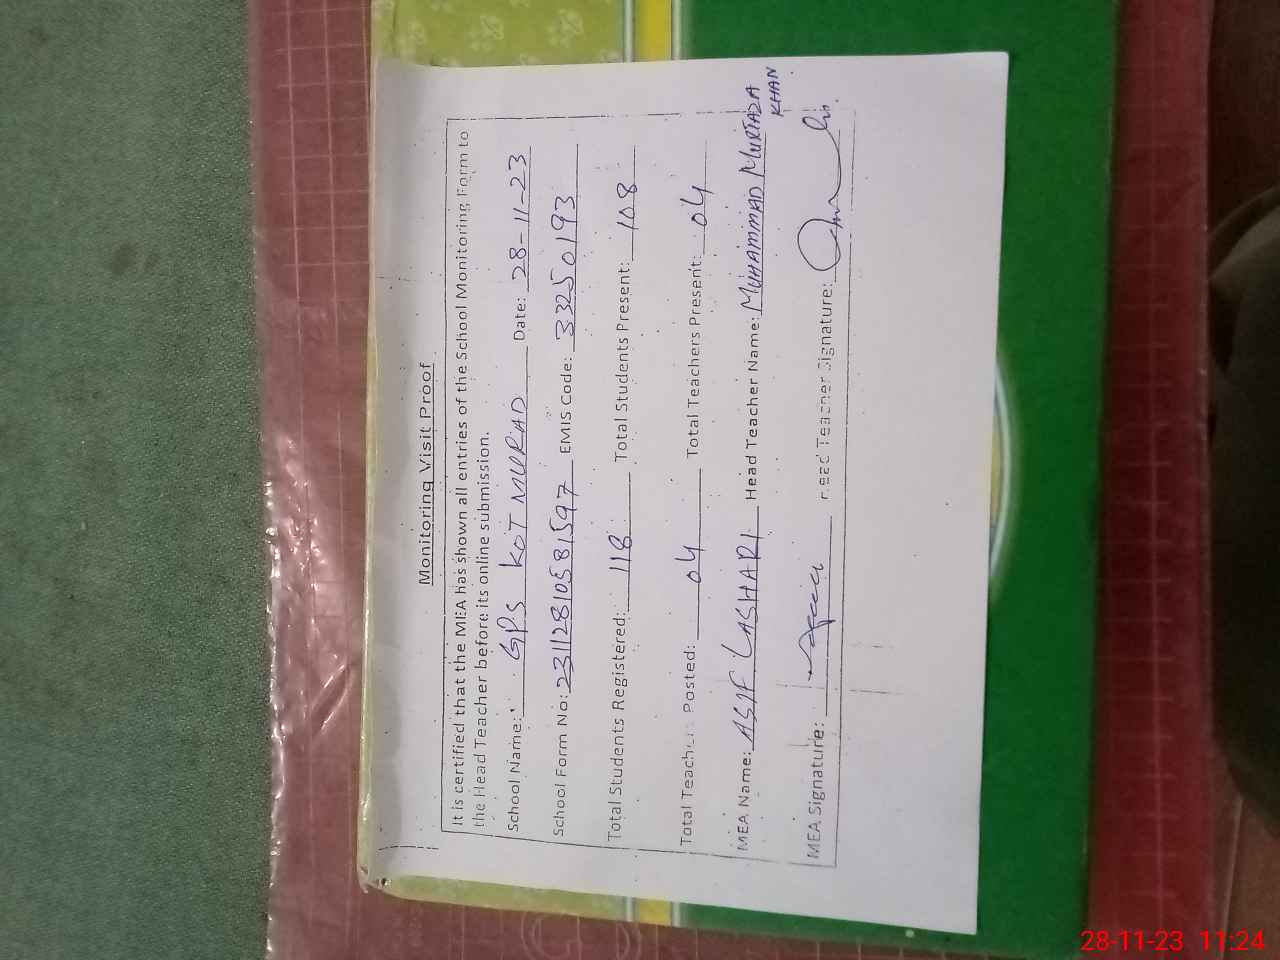 Monitoring Visit Proof
It is certified that the MEA has shown all entries of the School Monitoring Form to
the Head Teacher before its online submission.
School Name: GPS KOT MURAD Date: 28-11-23
School Form No: 23112810581597 EMIS Code: 33250193
Total Students Registered: 118 Total Students Present: 108
Total Teachers Posted: 04 Total Teachers Present: 04
MEA Name: ASIF LASHARI Head Teacher Name: MUHAMMAD MURTAZA
KHAN
MEA Signature: Head Teacher Signature:
28-11-23 11:24